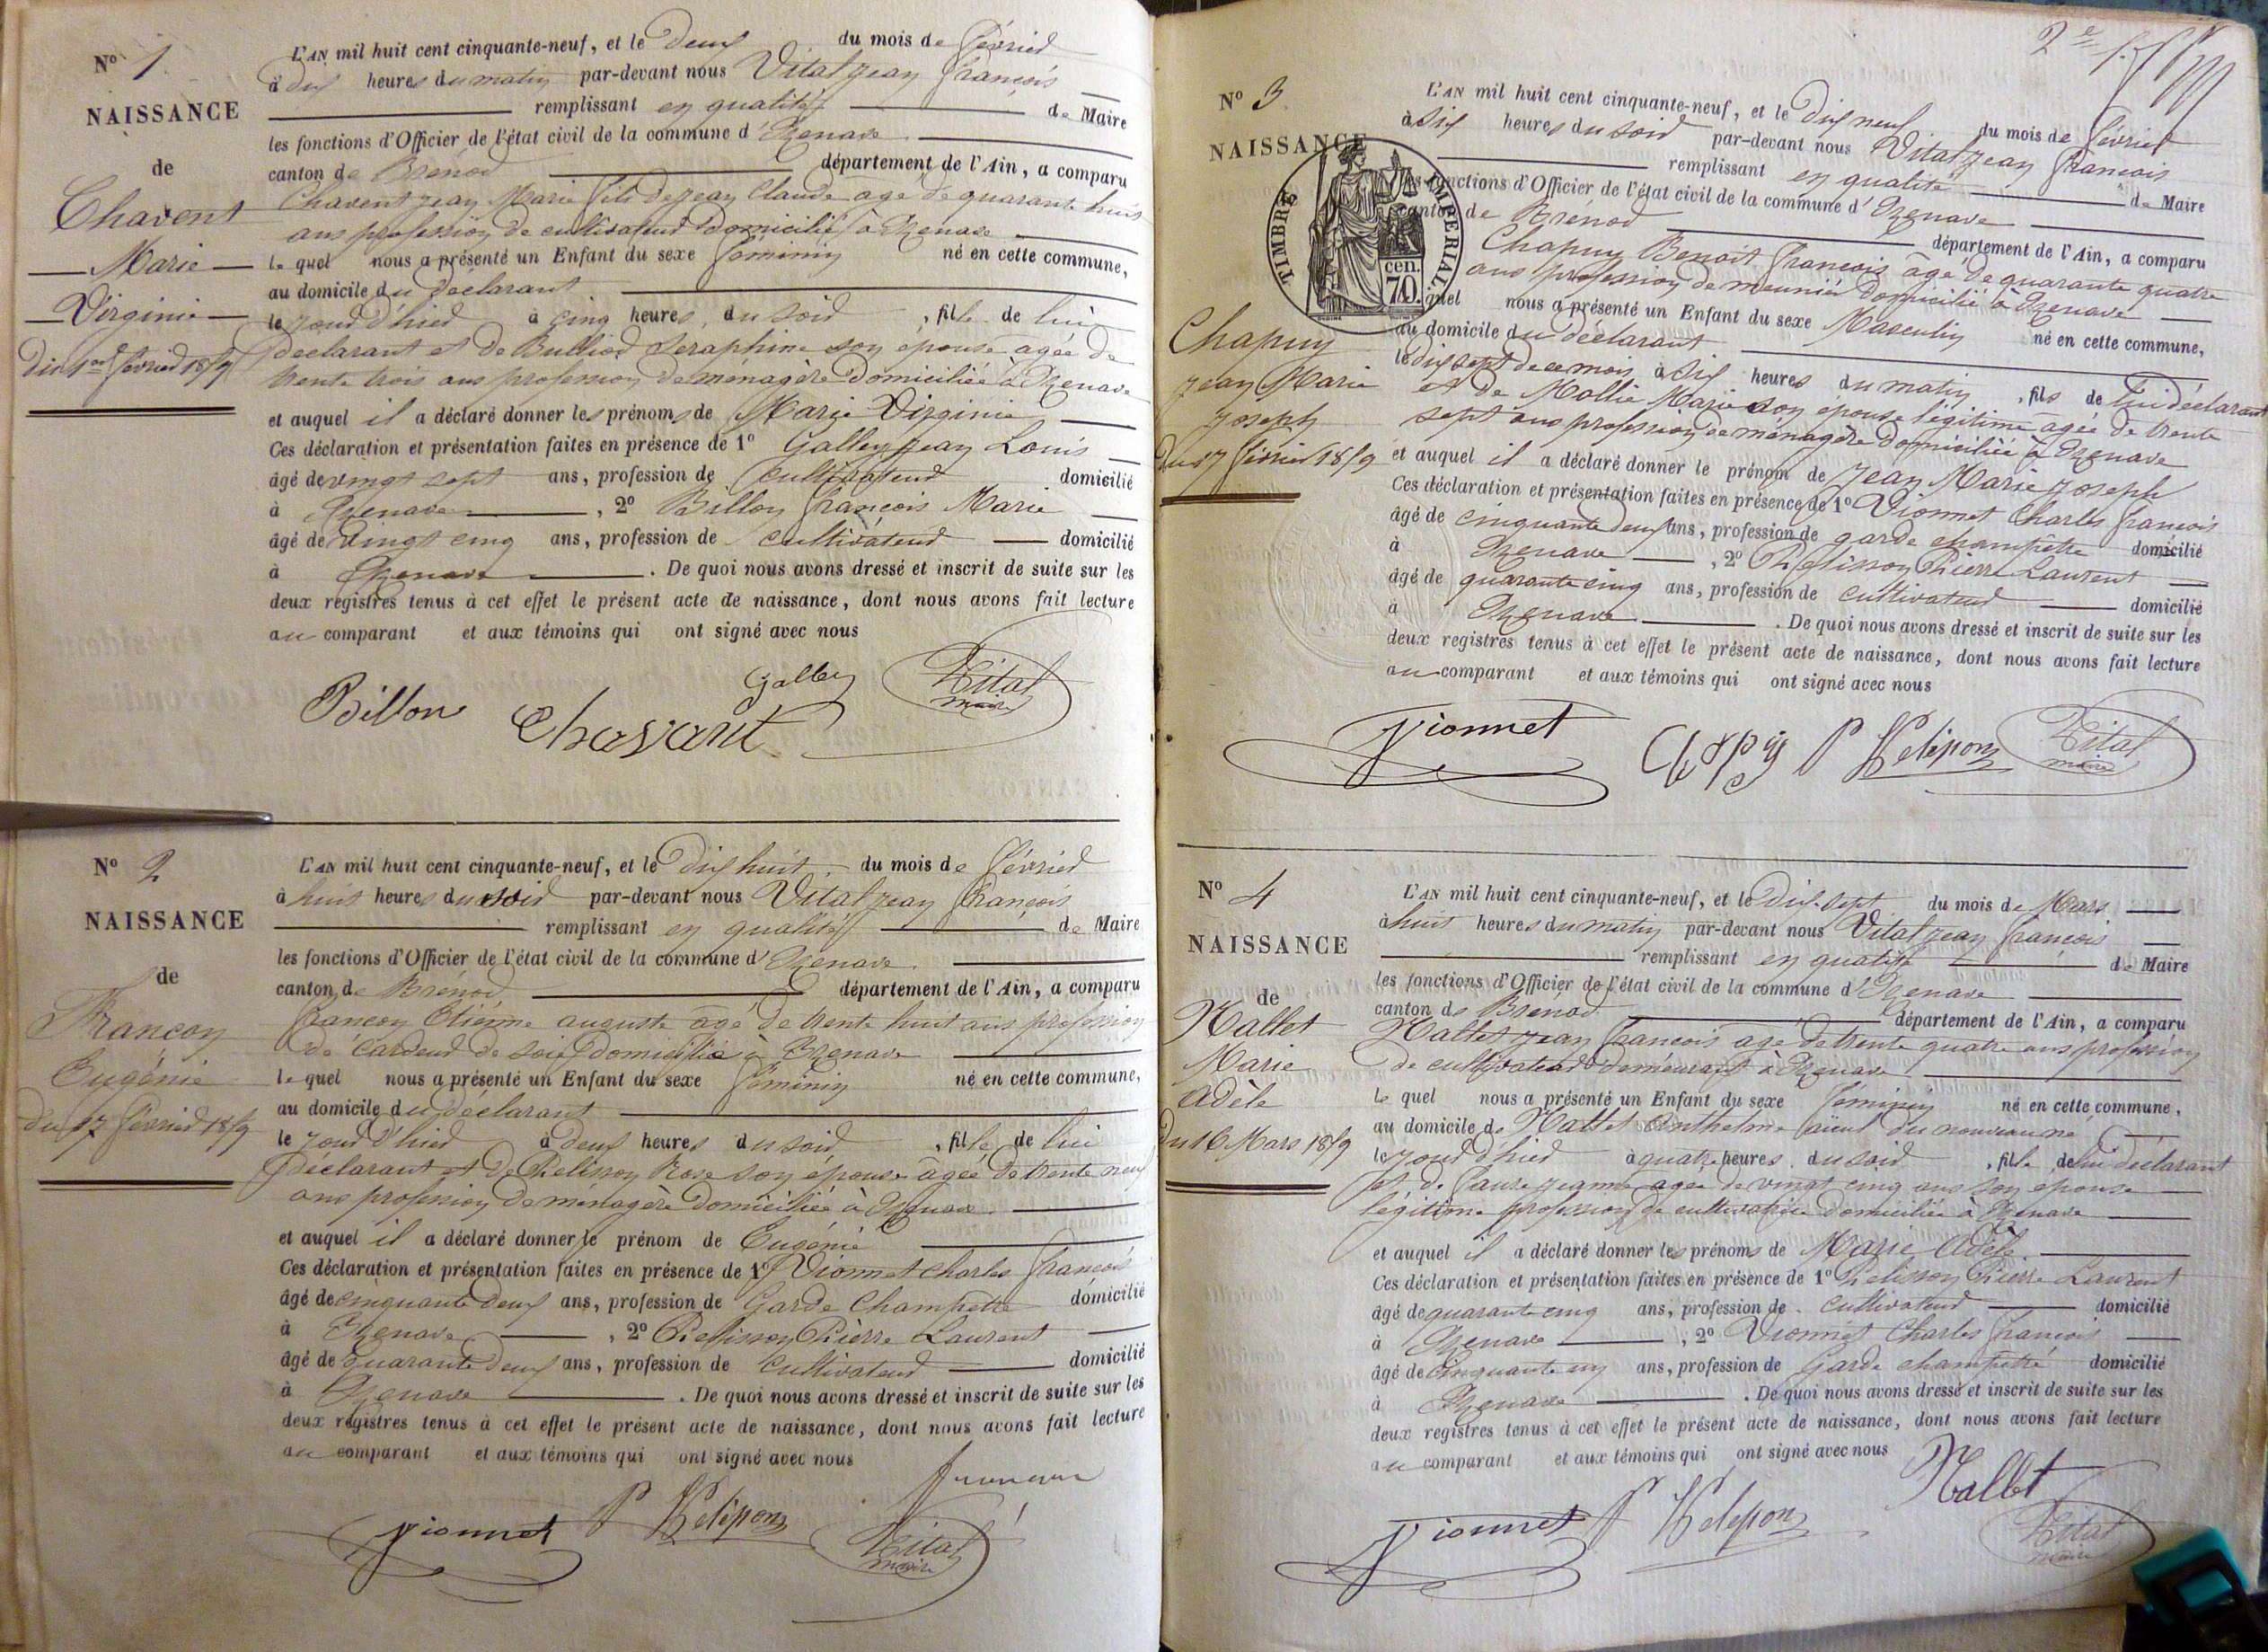 N° 1
NAISSANCE
de
Chavent
Marie
Virginie
du 1er février 1859
L'AN mil huit cent cinquante-neuf, et le deux du mois de février
à dix heures du matin par-devant nous Vital Jean François
remplissant en qualité de Maire
les fonctions d'Officier de l'état civil de la commune d'Izenave
canton de Brénod département de l'Ain, a comparu
Chavent Jean Marie fils de Jean Claude age de quarante huit
ans profession de cultivateur domicilié à Izenave
lequel nous a présenté un Enfant du sexe féminin né en cette commune,
au domicile du déclarant
le jour d'hier à cinq heures du soir, fille de lui
déclarant et de Bulliod Seraphine son épouse agée de
trente trois ans profession de menagère domiciliée à Izenave
et auquel il a déclaré donner les prénoms de Marie Virginie
Ces déclaration et présentation faites en présence de 1° Galley Jean Louis
âgé de vingt sept ans, profession de cultivateur domicilié
à Izenave, 2° Billon François Marie
âgé de vingt cinq ans, profession de cultivateur domicilié
à Izenave. De quoi nous avons dressé et inscrit de suite sur les
deux registres tenus à cet effet le présent acte de naissance, dont nous avons fait lecture
au comparant et aux témoins qui ont signé avec nous
Galley
Billon Chavant Vital
maire
N° 2
NAISSANCE
de
Francon
Eugénie
du 17 février 1859
L'AN mil huit cent cinquante-neuf, et le dix huit du mois de février
à huit heures du soir par-devant nous Vital Jean François
remplissant en qualité de Maire
les fonctions d'Officier de l'état civil de la commune d'Izenave
canton de Brénod département de l'Ain, a comparu
francon Etienne auguste agé de trente huit ans profession
de cardeur de soie domicilié à Izenave
lequel nous a présenté un Enfant du sexe féminin né en cette commune,
au domicile du déclarant
le jour d'hier à deux heures du soir, fille de lui
déclarant et de Pelisson Rose son épouse âgée de trente neuf
ans profession de ménagère domiciliée à Izenave
et auquel il a déclaré donner le prénom de Eugénie
Ces déclaration et présentation faites en présence de 1° Vionnet Charles François
âgé de cinquante deux ans, profession de Garde Champêtre domicilié
à Izenave, 2° Pelisson Pierre Laurent
âgé de quarante deux ans, profession de cultivateur domicilié
à Izenave. De quoi nous avons dressé et inscrit de suite sur les
deux registres tenus à cet effet le présent acte de naissance, dont nous avons fait lecture
au comparant et aux témoins qui ont signé avec nous
Vionnet P Pelisson Vital
maire
2e
N° 3
NAISSANCE
TIMBRE IMPERIAL
70 cen.
Chapuy
Jean Marie
Joseph
du 17 février 1859
L'AN mil huit cent cinquante-neuf, et le dix neuf du mois de février
à six heures du soir par-devant nous Vital Jean François
remplissant en qualité de Maire
les fonctions d'Officier de l'état civil de la commune d'Izenave
canton de Brénod département de l'Ain, a comparu
Chapuy Benoit François âgé de quarante quatre
ans profession de meunier domicilié à Izenave
quel nous a présenté un Enfant du sexe Masculin né en cette commune,
au domicile du déclarant
le dix sept de ce mois à six heures du matin, fils de lui déclarant
et de Mollie Marie son épouse légitime âgée de trente
sept ans profession de ménagère domiciliée à Izenave
et auquel il a déclaré donner le prénom de Jean Marie Joseph
Ces déclaration et présentation faites en présence de 1° Vionnet Charles François
âgé de cinquante deux ans, profession de garde champêtre domicilié
à Izenave, 2° Pelisson Pierre Laurent
âgé de quarante cinq ans, profession de cultivateur domicilié
à Izenave. De quoi nous avons dressé et inscrit de suite sur les
deux registres tenus à cet effet le présent acte de naissance, dont nous avons fait lecture
au comparant et aux témoins qui ont signé avec nous
Vionnet Chapuy P Pelisson Vital
maire
N° 4
NAISSANCE
de
Mallet
Marie
Adèle
du 16 Mars 1859
L'AN mil huit cent cinquante-neuf, et le dix-sept du mois de Mars
à huit heures du matin par-devant nous Vital Jean François
remplissant en qualité de Maire
les fonctions d'Officier de l'état civil de la commune d'Izenave
canton de Brénod département de l'Ain, a comparu
Mallet Jean François agé de trente quatre ans profession
de cultivateur demeurant à Izenave
le quel nous a présenté un Enfant du sexe féminin né en cette commune,
au domicile de Mallet Anthelme aieul du nouveau né
le jour d'hier à quatre heures du soir, fille de lui déclarant
et de faure jeanne agée de vingt cinq ans son épouse
légitime profession de cultivatrice domiciliée à Izenave
et auquel il a déclaré donner les prénoms de Marie Adèle
Ces déclaration et présentation faites en présence de 1° Pelisson Pierre Laurent
âgé de quarante cinq ans, profession de cultivateur domicilié
à Izenave, 2° Vionnet Charles François
âgé de cinquante un ans, profession de Garde champêtre domicilié
à Izenave. De quoi nous avons dressé et inscrit de suite sur les
deux registres tenus à cet effet le présent acte de naissance, dont nous avons fait lecture
au comparant et aux témoins qui ont signé avec nous
Mallet
Vionnet P Pelisson Vital
maire